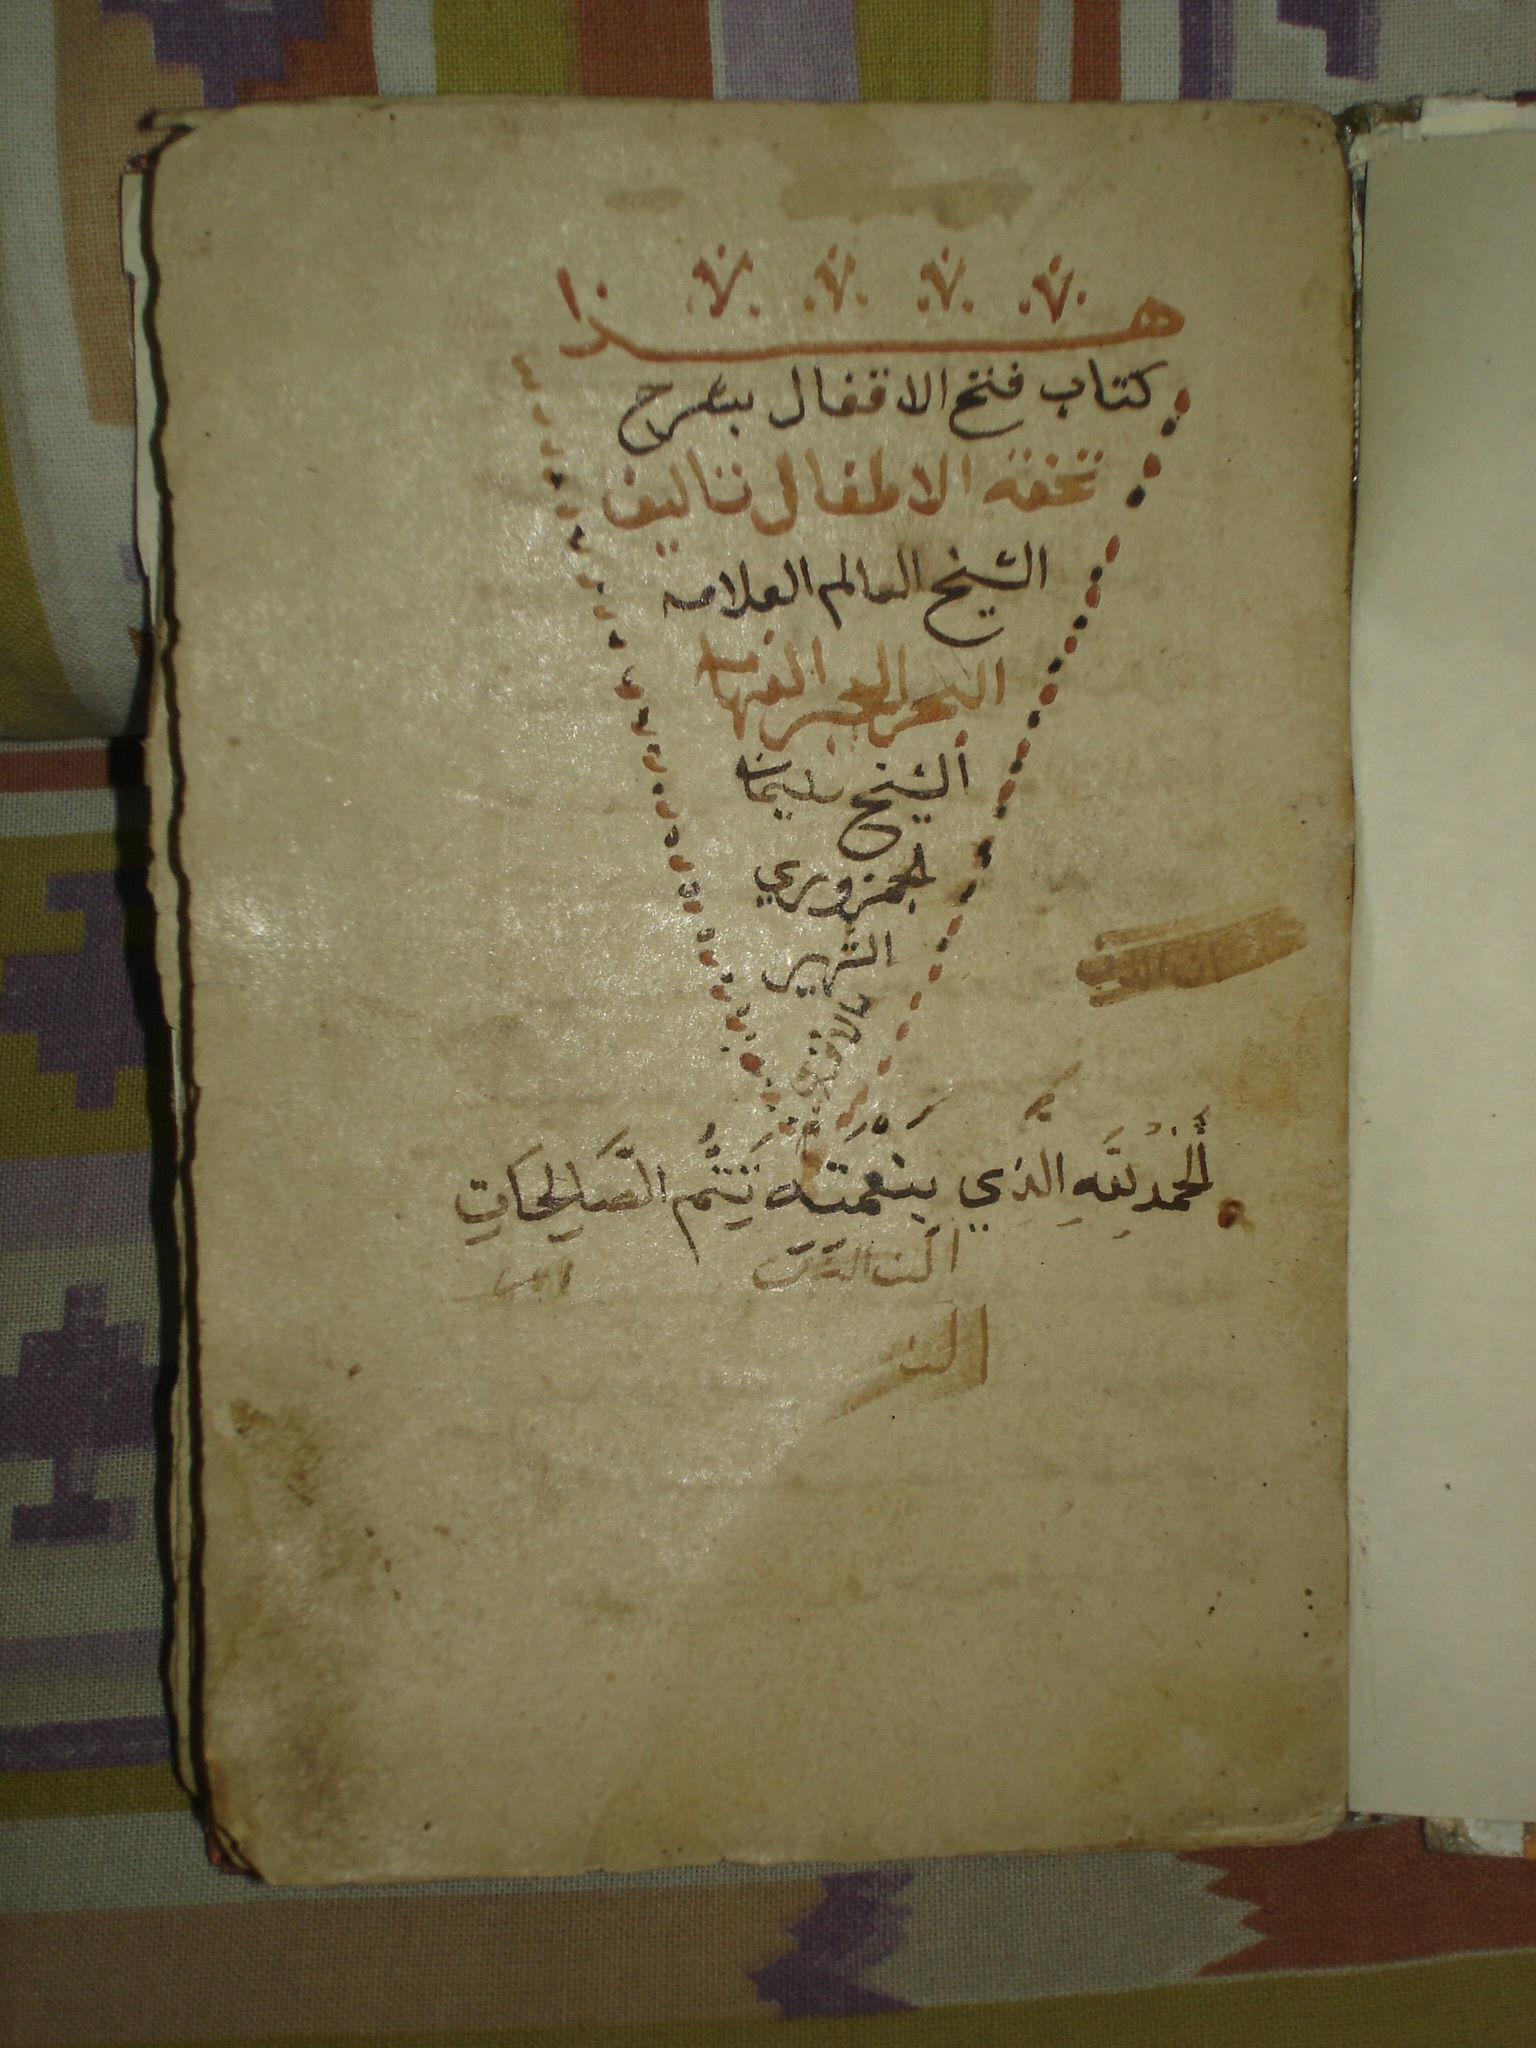 هذا
كتاب فتح الاقفال بشرح
تحفة الاطفال تاليف
الشيخ العالم العلامه
البحر الحبر الفهامه
الشيخ سليمان
الجمزوري
الشهير
بالافندي
اَلْحَمْدُ لِلَّهِ الَّذِي بِنِعْمَتِهِ تَتِمُّ الصَّالِحَاتِ